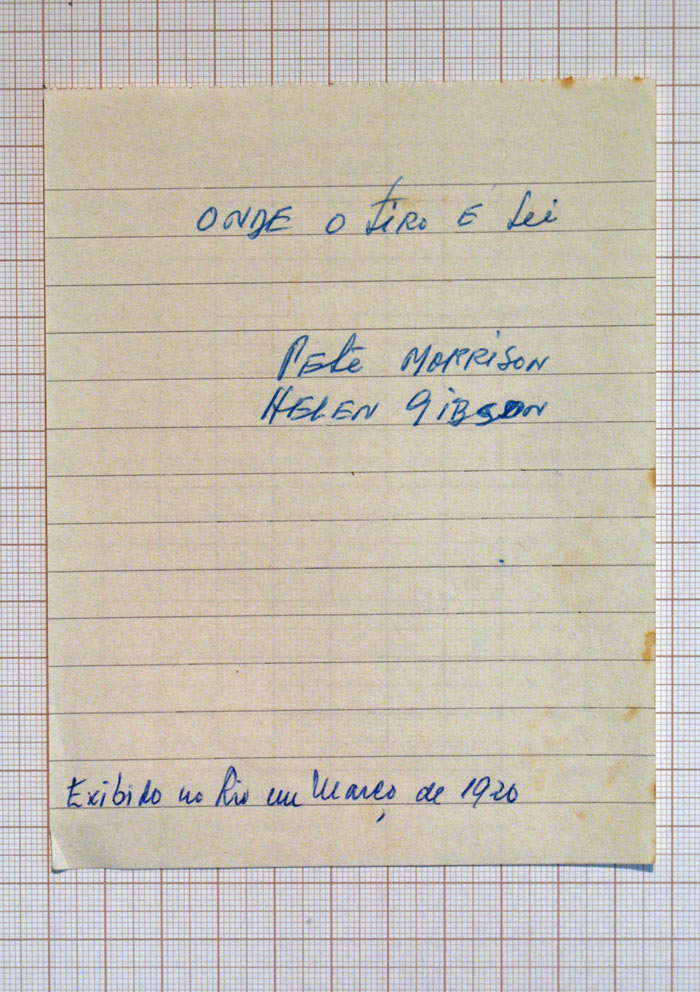 ONDE O TIRO É Lei
PETE MORRISON
HELEN GIBSON
Exibido no Rio em Março de 1920